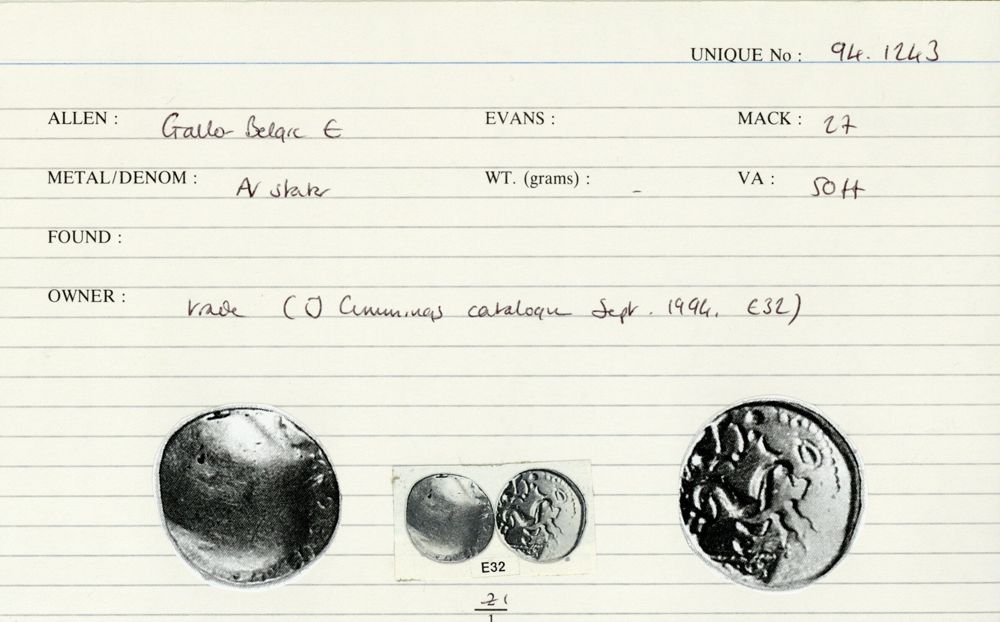 UNIQUE No : 94. 1243
ALLEN : Gallo-Belgic E EVANS : MACK : 27
METAL/DENOM : AV stater WT. (grams) : - VA : 50
FOUND :
OWNER : trade (CJ Cummings catalogue Sept. 1994. E32)
E32
1